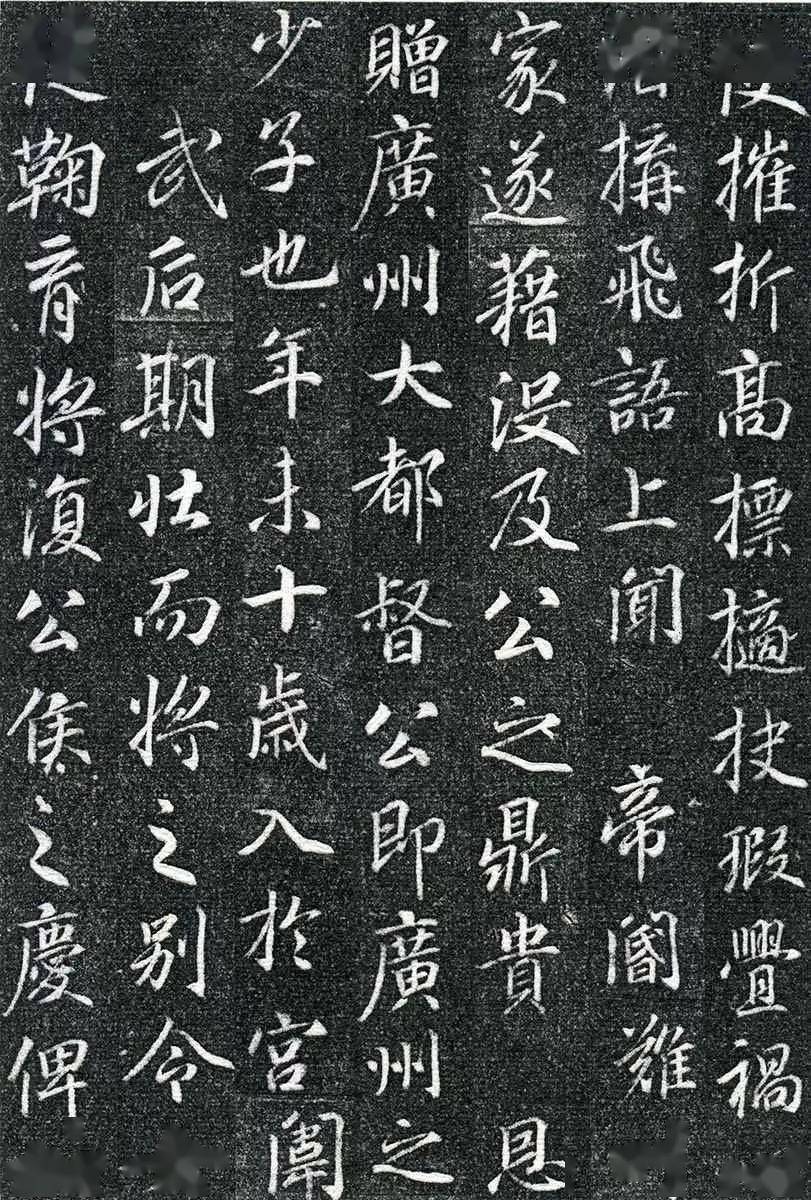 摧折高標擿抉瑕舋禍
搆飛語上聞 帝閽難
家遂藉沒及公之鼎貴 恩
贈廣州大都督公即廣州之
少子也年未十歲入於宮闈
武后期壯而將之別令
鞠育將復公侯之慶俾